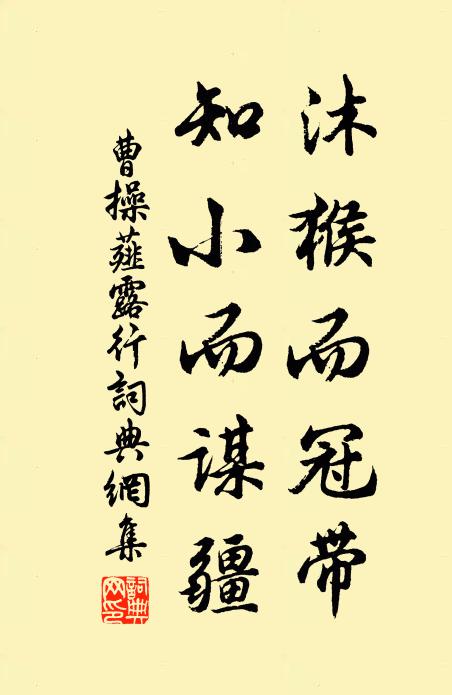 沐猴而冠帶
知小而謀疆
曹操薤露行詞典網集
詞典網印